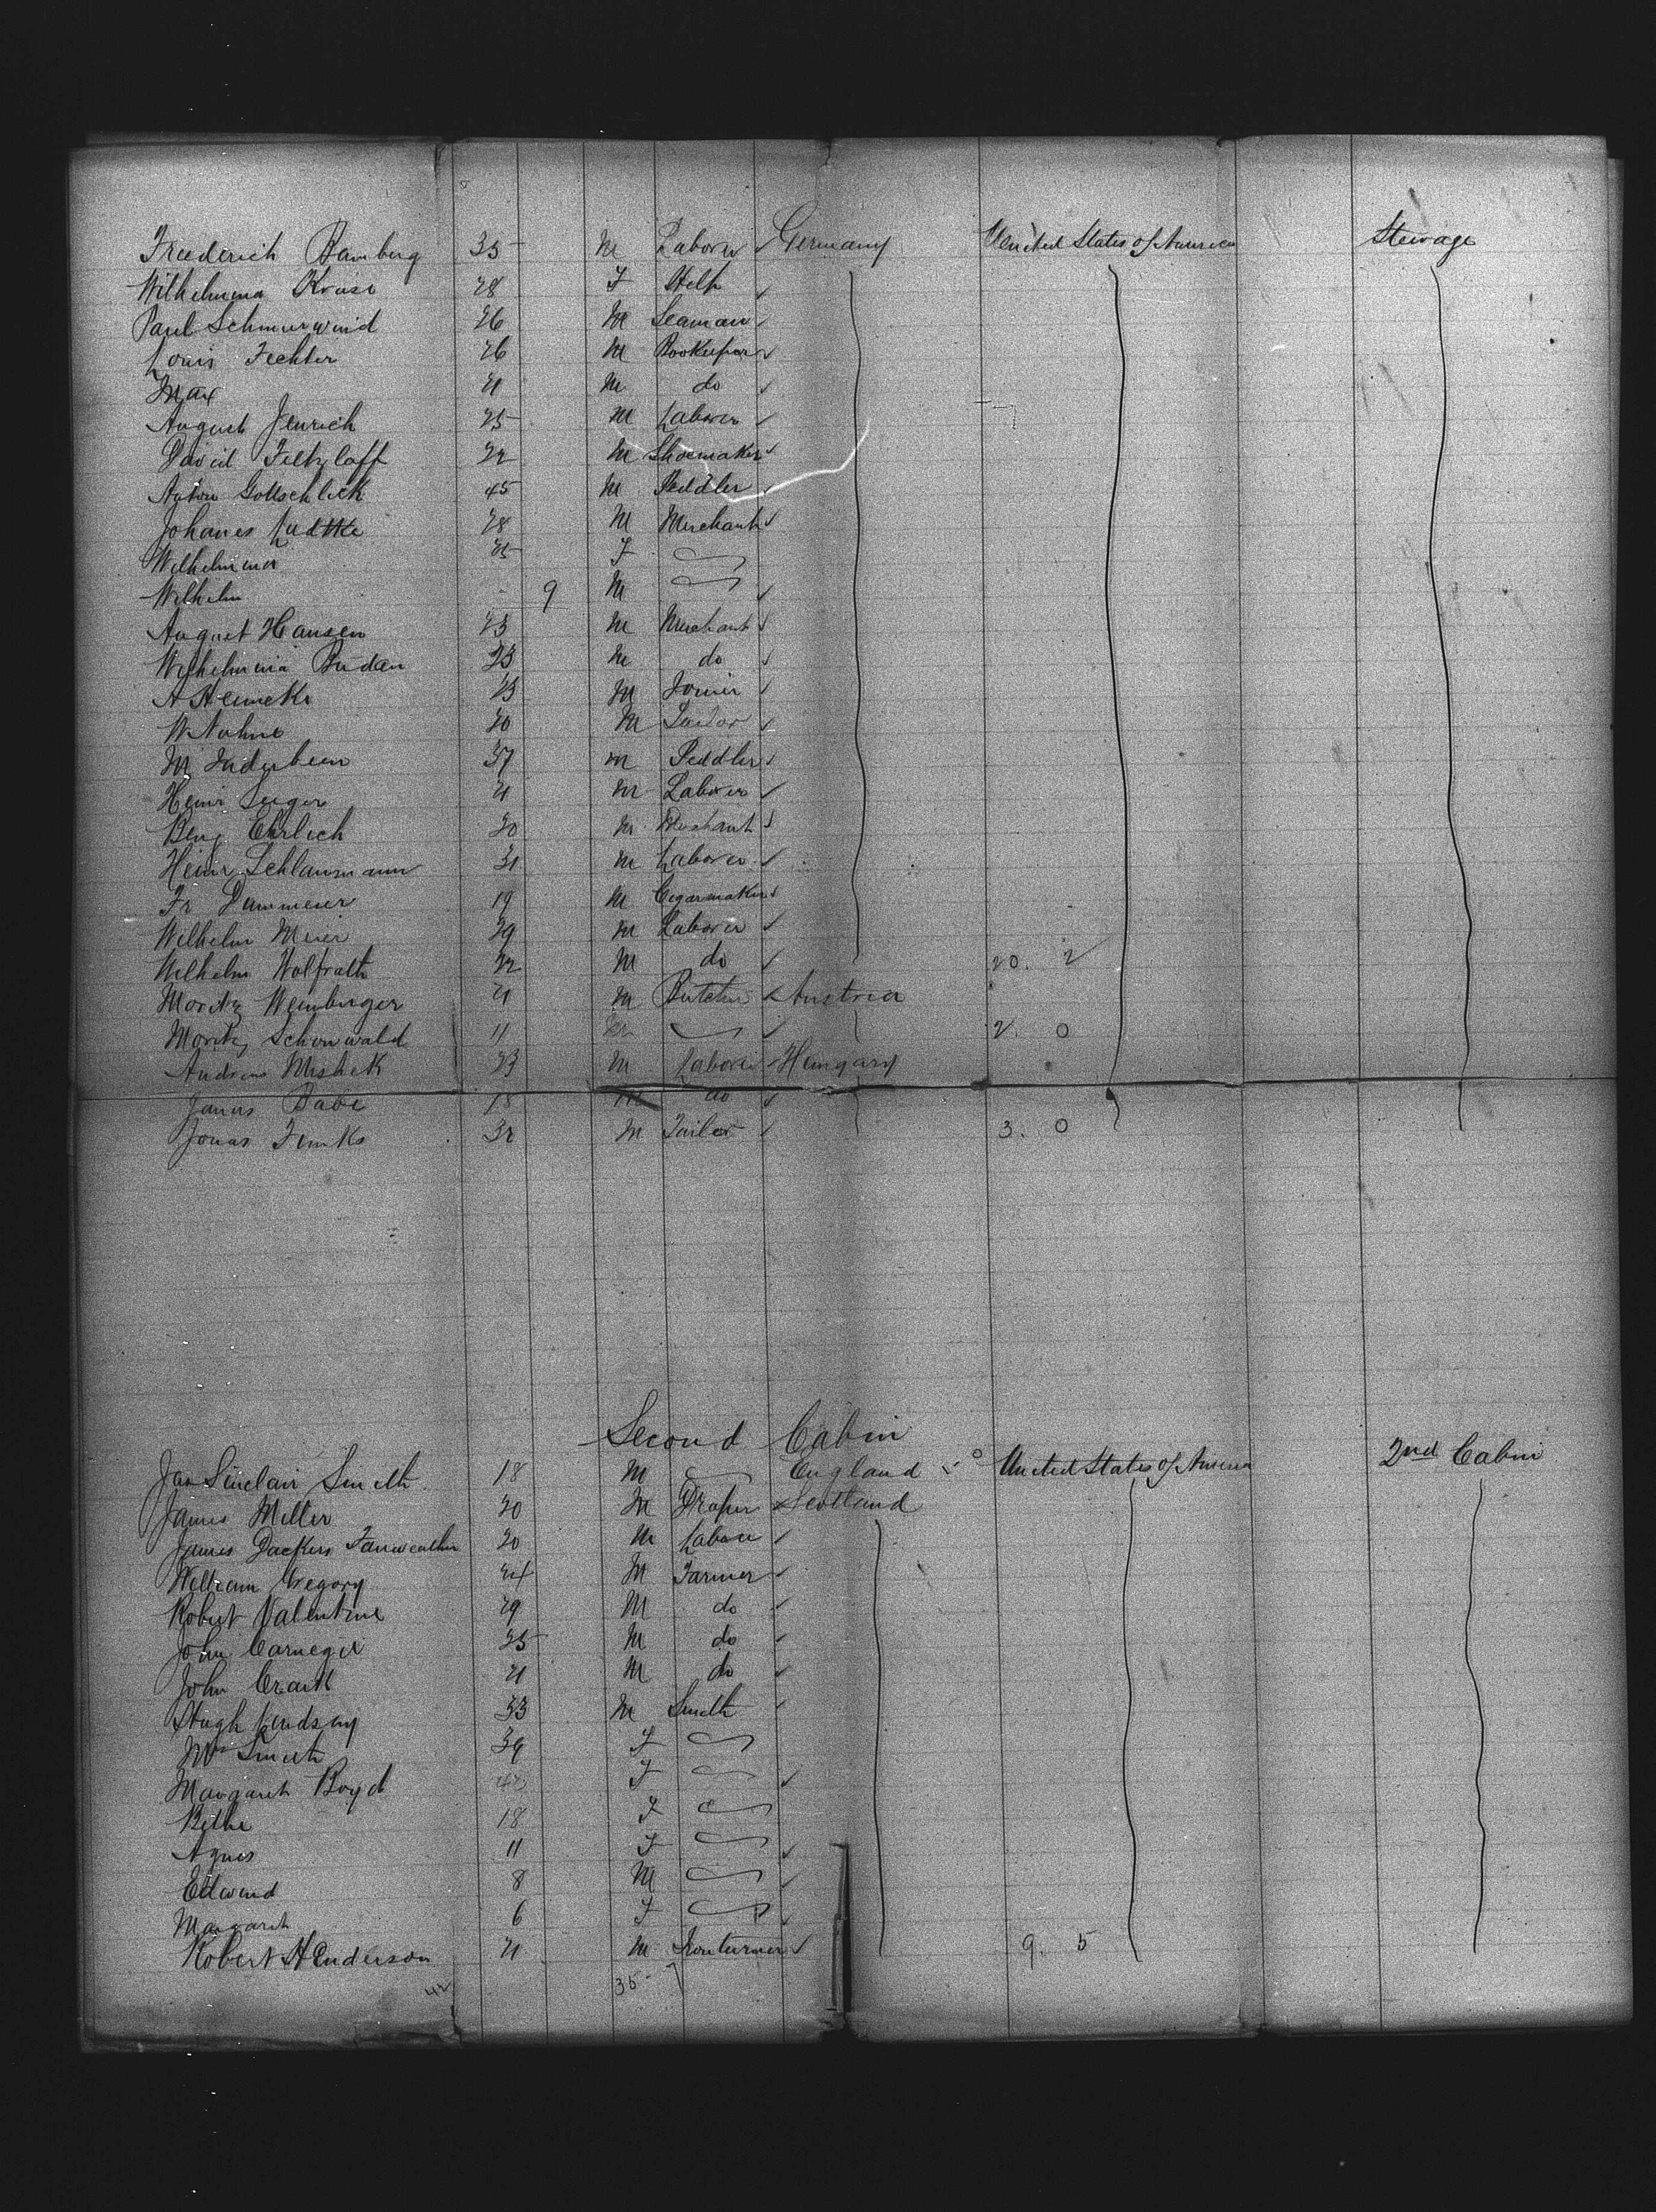 Frederich Bamberg 35 M Laborer ✓ Germany United States of America Steerage
Wilhelmina Kruse 28 F Help ✓
Paul Schmurwind 26 M Seaman ✓
Louis Fechter 26 M Bookeeper ✓
Max 21 M do ✓
August Jenrich 25 M Laborer ✓
David Feltzlaff 22 M Shoemaker ✓
Anton Gottschlick 45 M Peddler ✓
Johanes Ludtke 28 M Merchant ✓
Wilhelmina 25 F
Wilhelm 9 M ✓
August Hansen 23 M Merchant ✓
Wilhelmina Buden 23 M do ✓
A Hennecke 23 M Joiner ✓
W Nohne 20 M Tailor ✓
M Inderbeen 37 M Peddler ✓
Heinr Seeger 21 M Laborer ✓
Benj Ehrlich 20 M Merchant ✓
Heinr Schlausmann 31 M Laborer ✓
Fr Dammeier 19 M Cigarmaker ✓
Wilhelm Meier 29 M Laborer ✓
Wilhelm Wolfrath 22 M do ✓ 20. 2
Moritz Weinburger 21 M Butcher ✓ Austria
Moritz Schonwald 11 M ✓ 2. 0
Andreas Mishek 23 M Laborer ✓ Hungary
Janus Babe 18 M do ✓
Jonas 32 M Tailor ✓ 3. 0
Second Cabin
Jas Sinclair Smith 18 M England ✓ o United States of America 2nd Cabin
James Miller 20 M Draper ✓ Scotland
James Dackers Fairweather 20 M Laborer ✓
William Gregory 24 M Farmer ✓
Robert Valentine 29 M do ✓
John Carnegie 25 M do ✓
John Craik 21 M do ✓
Hugh Lindsay 33 M Smith ✓
Mrs Smith 39 F
Margaret Boyd 42 F ✓
18 F
Agnes 11 F ✓
Edward 8 M ✓
Margaret 6 F ✓
Robert Henderson 21 M Ironturner ✓ 9. 5
42 35 7